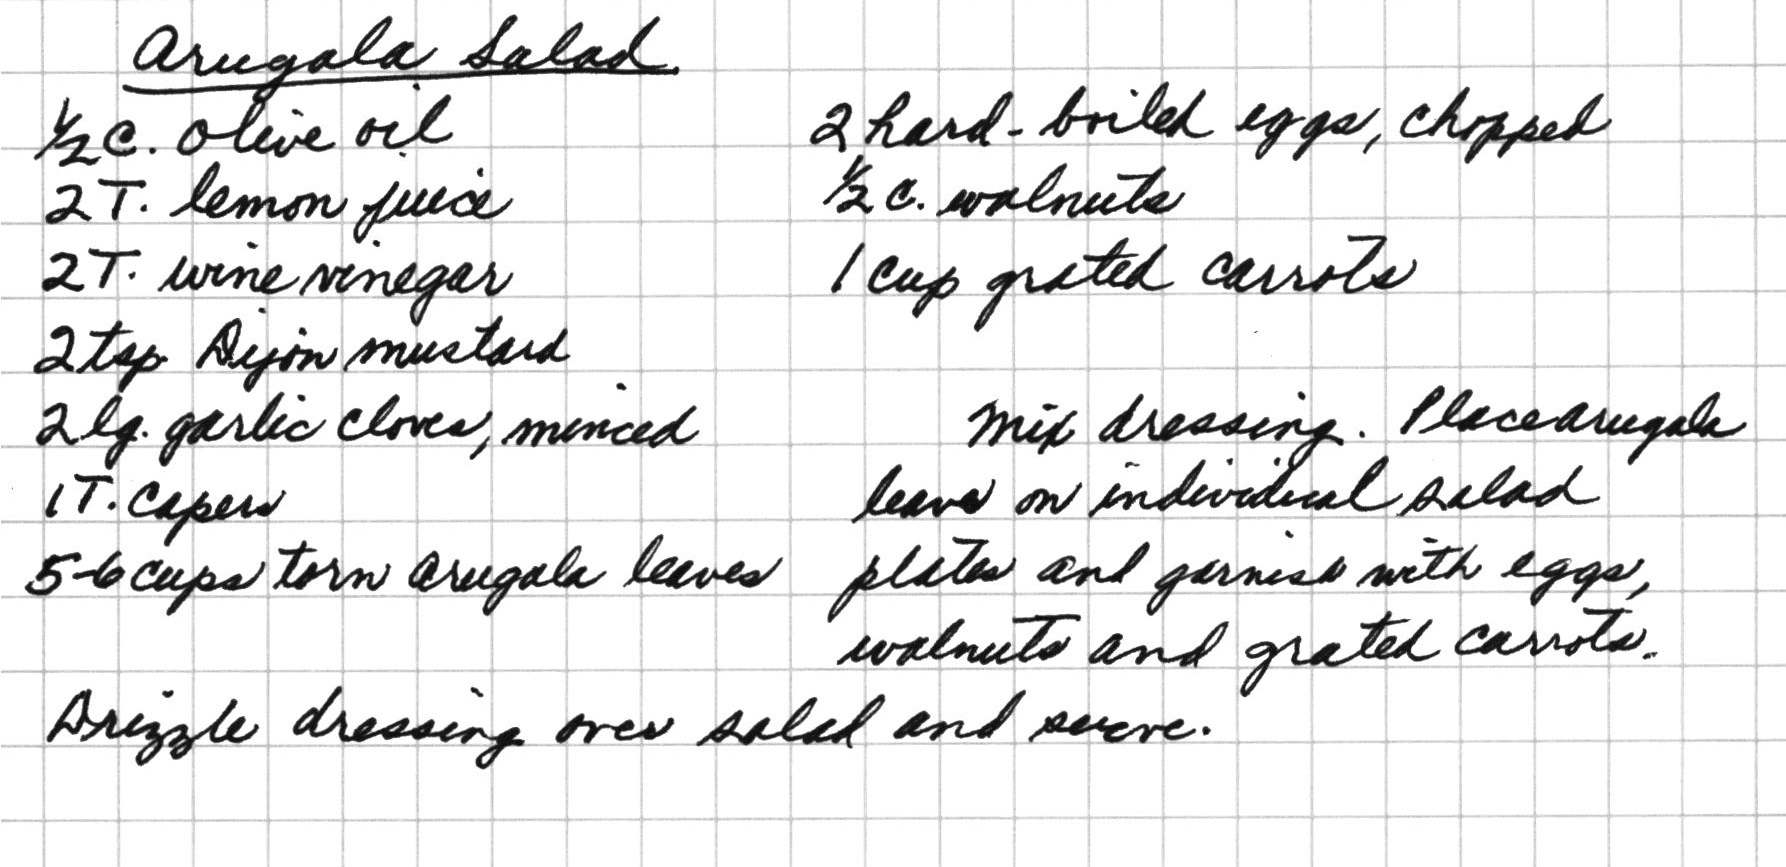 Arugala Salad
½ c. olive oil
2 T. lemon juice
2 T. wine vinegar
2 tsp. Dijon mustard
2 lg. garlic cloves, minced
1 T. capers
5-6 cups torn arugala leaves
2 hard-boiled eggs, chopped
½ c. walnuts
1 cup grated carrots
Mix dressing. Place arugala
leaves on individual salad
plates and garnish with eggs,
walnuts and grated carrots.
Drizzle dressing over salad and serve.